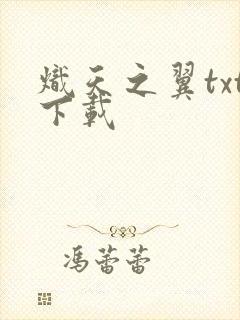 熾天之翼txt
下載
馮蕾蕾